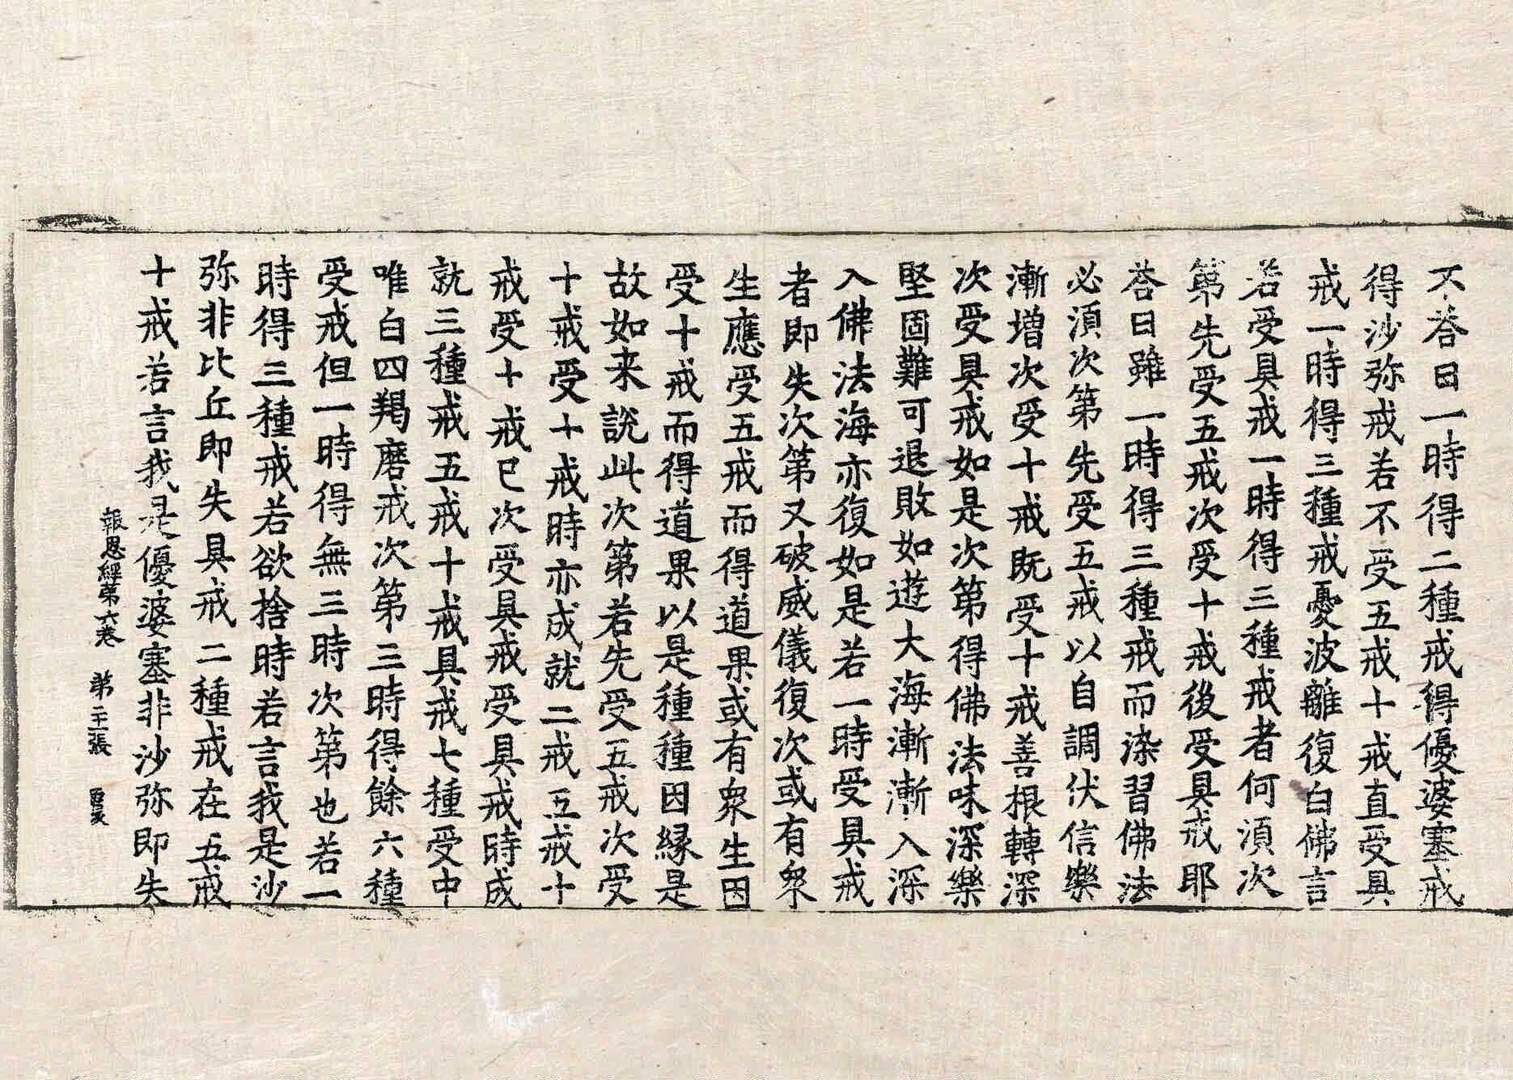 不荅曰一時得二種戒得優婆塞戒
得沙弥戒若不受五戒十戒直受具
戒一時得三種戒憂波離復白佛言
若受具戒一時得三種戒者何湏次
第先受五戒次受十戒後受具戒耶
荅曰雖一時得三種戒而染習佛法
必湏次第先受五戒以自調伏信樂
漸增次受十戒既受十戒善根轉深
次受具戒如是次第得佛法味深樂
堅固難可退敗如遊大海漸漸入深
入佛法海亦復如是若一時受具戒
者即失次第又破威儀復次或有衆
生應受五戒而得道果或有衆生因
受十戒而得道果以是種種因縁是
故如来說此次第若先受五戒次受
十戒受十戒時亦成就二戒五戒十
戒受十戒已次受具戒受具戒時成
就三種戒五戒十戒具戒七種受中
唯白四羯磨戒次第三時得餘六種
受戒但一時得無三時次第也若一
時得三種戒若欲捨時若言我是沙
弥非比丘即失具戒二種戒在五戒
十戒若言我是優婆塞非沙弥即失
報恩經第六卷 第二十二張